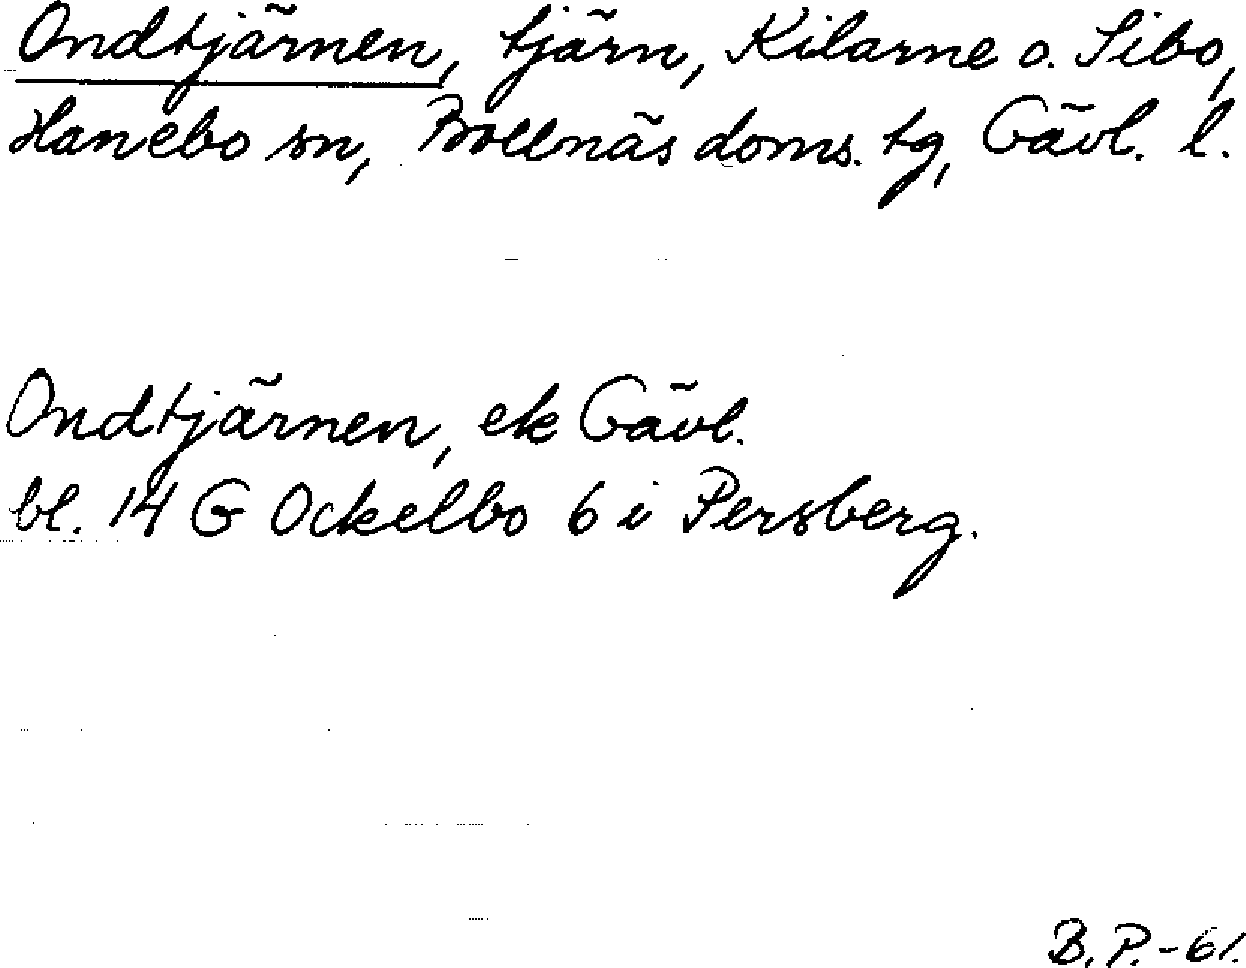 Ondtjärnen, tjärn, Kilarne o. Sibo,
Hanebo sn, Bollnäs doms. tg, Gävl. l.
Ondtjärnen, ek Gävl.
bl. 14 G Ockelbo 6 i Persberg.
B. P. -61.